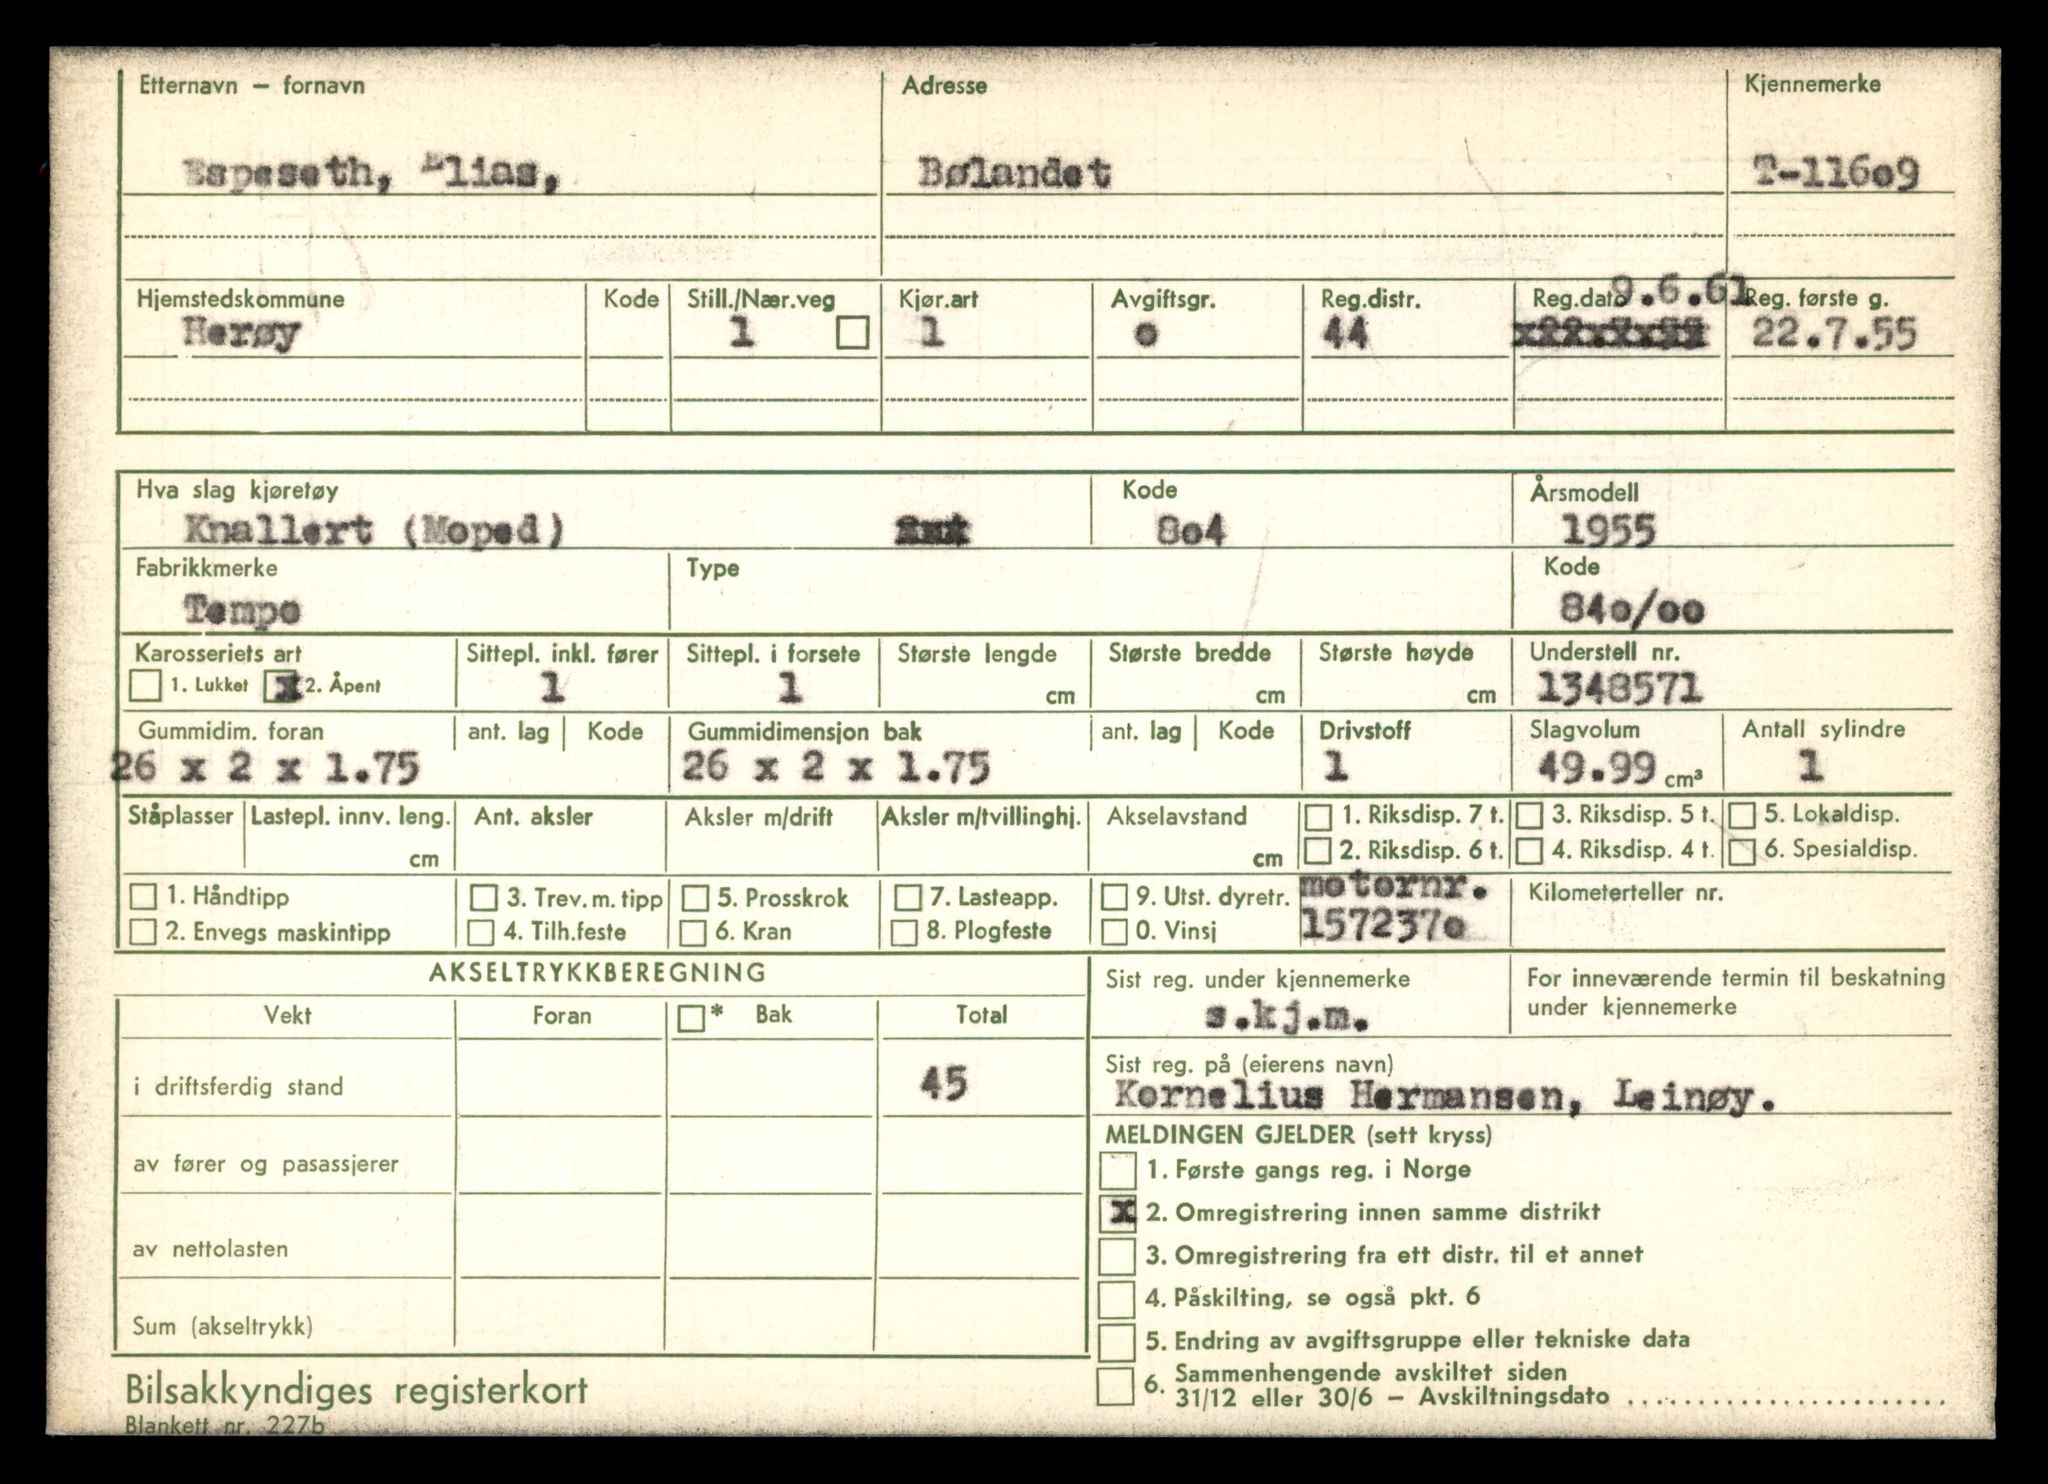 Etternavn – fornavn Adresse Kjennemerke
Espeseth, Elias, Bølandet T-116o9
9.6.61
Hjemstedskommune Kode Still./Nær.veg Kjør.art Avgiftsgr. Reg.distr. Reg.dato Reg. første g.
Herøy 1 1 o 44 22.7.55
Hva slag kjøretøy Kode Årsmodell
Knallert (Moped) 8o4 1955
Fabrikkmerke Type Kode
Tempo 84o/oo
Karosseriets art Sittepl. inkl. fører Sittepl. i forsete Største lengde Største bredde Største høyde Understell nr.
1. Lukket x 2. Åpent 1 1 cm cm cm 1348571
Gummidim. foran ant. lag Kode Gummidimensjon bak ant. lag Kode Drivstoff Slagvolum Antall sylindre
26 x 2 x 1.75 26 x 2 x 1.75 1 49.99 cm³ 1
Ståplasser Lastepl. innv. leng. Ant. aksler Aksler m/drift Aksler m/tvillinghj. Akselavstand 1. Riksdisp. 7 t. 3. Riksdisp. 5 t. 5. Lokaldisp.
cm cm 2. Riksdisp. 6 t. 4. Riksdisp. 4 t. 6. Spesialdisp.
1. Håndtipp 3. Trev. m. tipp 5. Prosskrok 7. Lasteapp. 9. Utst. dyretr. motornr. Kilometerteller nr.
2. Envegs maskintipp 4. Tilh.feste 6. Kran 8. Plogfeste 0. Vinsj 157237o
AKSELTRYKKBEREGNING Sist reg. under kjennemerke For inneværende termin til beskatning
Vekt Foran * Bak Total s.kj.m. under kjennemerke
i driftsferdig stand 45
Sist reg. på (eierens navn)
Kornelius Hermansen, Leinøy.
av fører og pasassjerer
av nettolasten
Sum (akseltrykk)
MELDINGEN GJELDER (sett kryss)
1. Første gangs reg. i Norge
x 2. Omregistrering innen samme distrikt
3. Omregistrering fra ett distr. til et annet
4. Påskilting, se også pkt. 6
5. Endring av avgiftsgruppe eller tekniske data
6. Sammenhengende avskiltet siden
31/12 eller 30/6 – Avskiltningsdato ......................
Bilsakkyndiges registerkort
Blankett nr. 227b